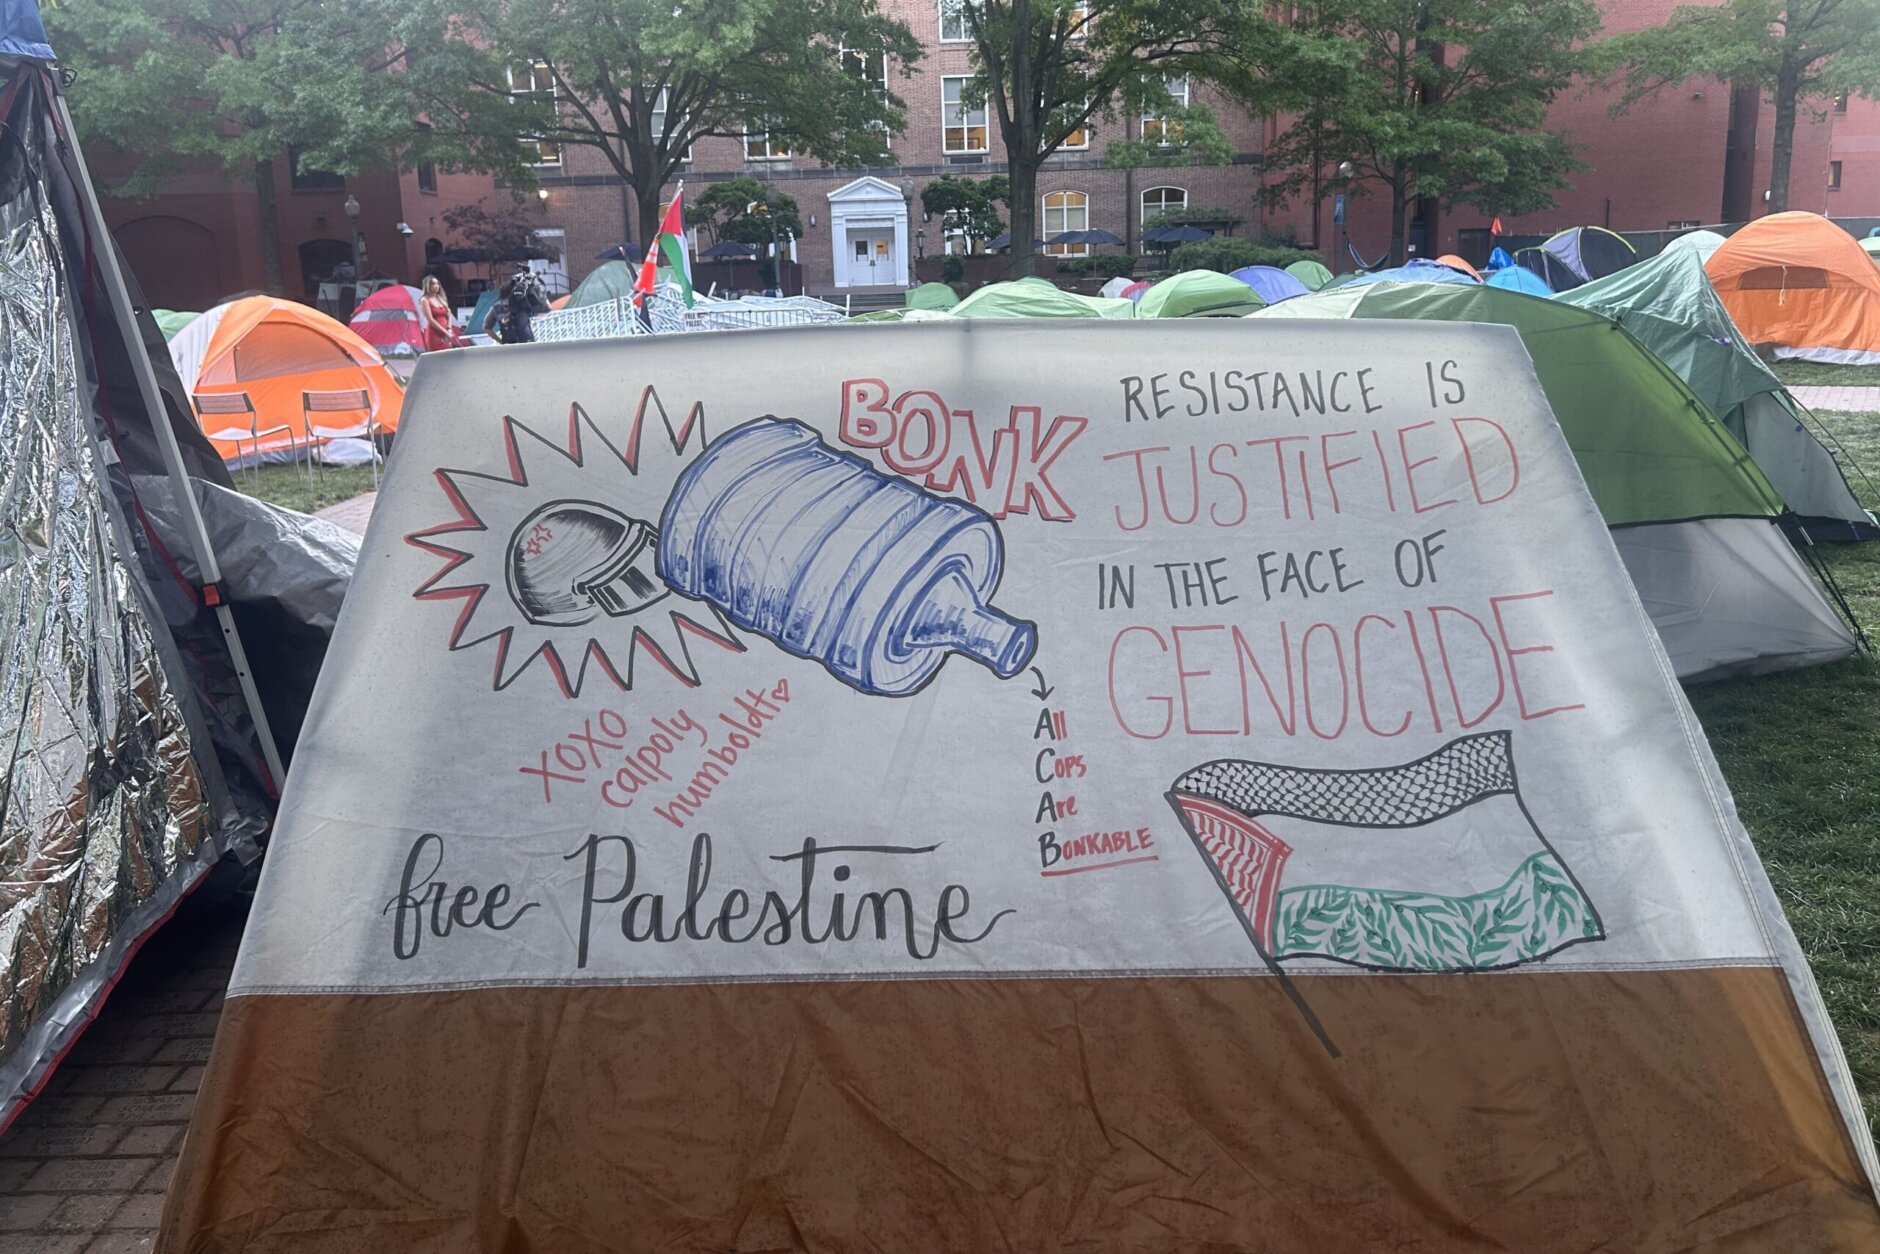 BONK
RESISTANCE IS
JUSTIFIED
IN THE FACE OF
GENOCIDE
All
Cops
Are
BONKABLE
XOXO
calpoly
humboldt
free Palestine